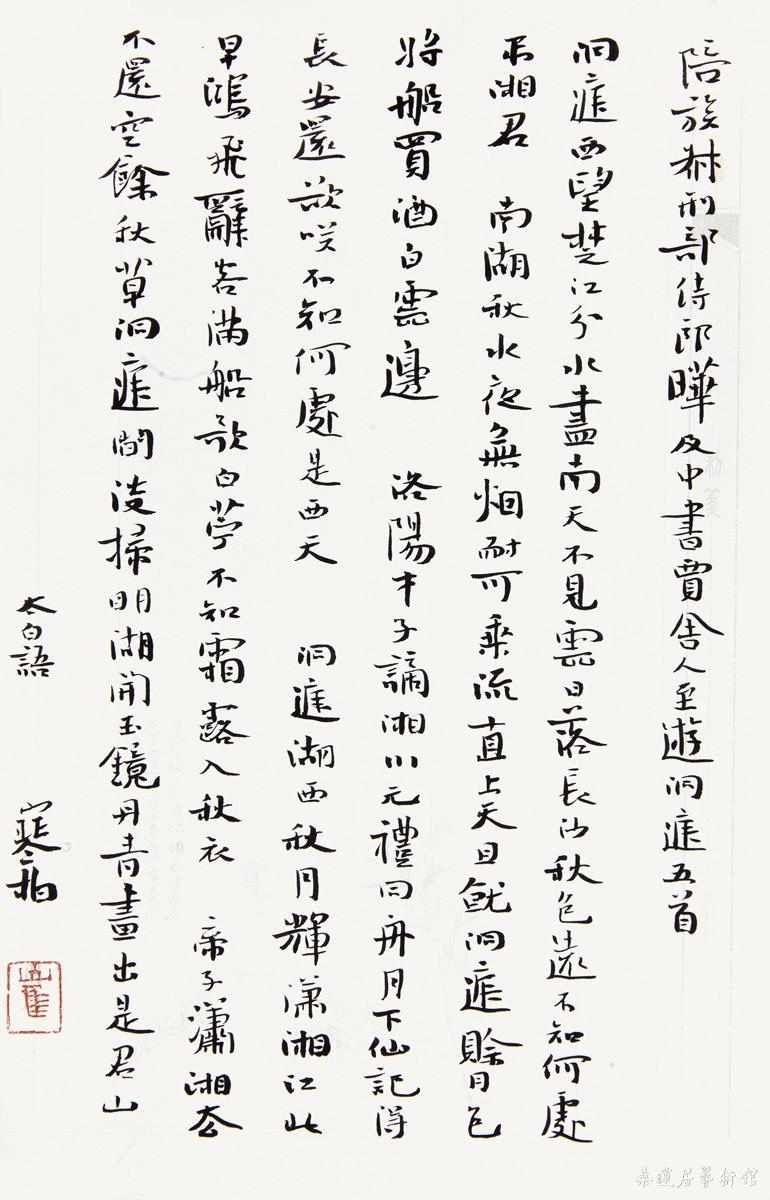 陪族叔刑部侍郎曄及中書賈舍人至遊洞庭五首
洞庭西望楚江分水盡南天不見雲日落長沙秋色遠不知何處
吊湘君 南湖秋水夜無烟耐可乘流直上天且就洞庭賒月色
將船買酒白雲邊 洛陽才子謫湘川元禮同舟月下仙記得
長安還欲咲不知何處是西天 洞庭湖西秋月輝瀟湘江北
早鴻飛辭客滿船歌白苧不知霜露入秋衣 帝子瀟湘去
不還空餘秋草洞庭間淡掃明湖開玉鏡丹青畫出是君山
太白語 寒
桑蓮居藝術館